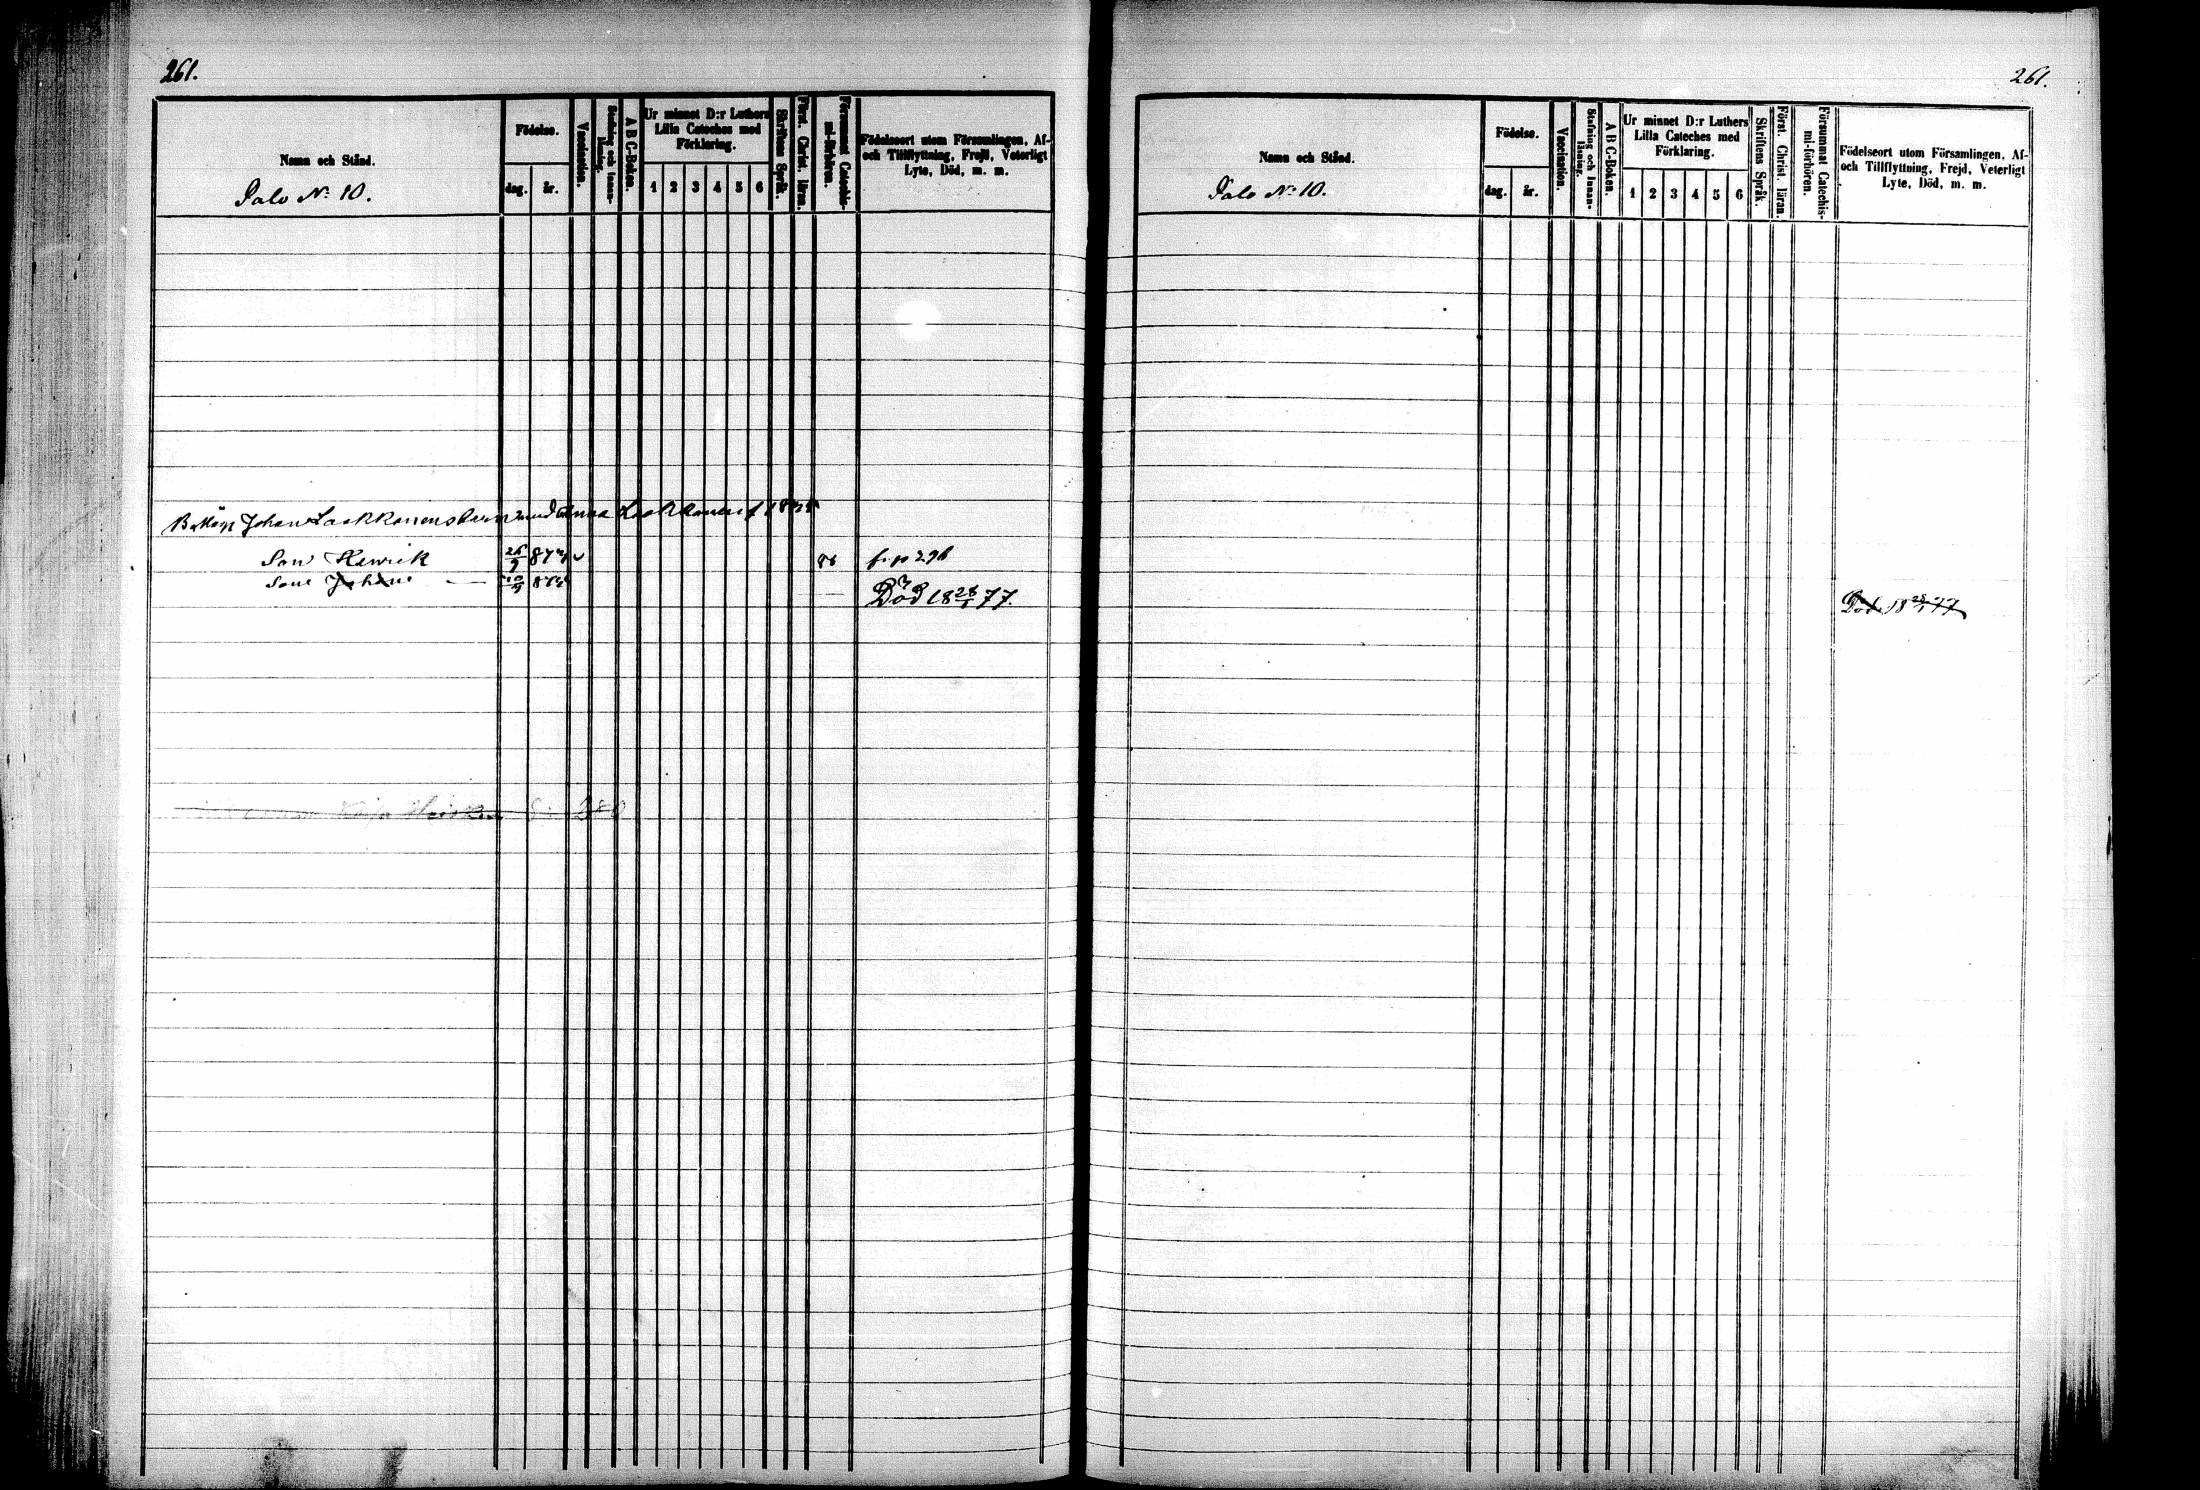 261.
Namn och Stånd.
Jalo No 10.
Födelse.
dag.
år.
Vaccination.
Stafning och Innanläsning.
A B C-Boken.
Ur minnet D:r Luthers
Lilla Cateches med
Förklaring.
1 2 3 4 5 6
Skriftens Språk.
Först. Christ. läran.
Försummat Catechismi-förhören.
Födelseort utom Församlingen, Af-
och Tillflyttning, Frejd, Veterligt
Lyte, Död, m. m.
Johan Laakkonens barn med Anna Laakkonen
Son Henrik 26/9 87 f. p 296
Son Johan 10/9 87
Död 18 28/1 77.
Kaisa
261.
Namn och Stånd.
Jalo No 10.
Födelse.
dag.
år.
Vaccination.
Stafning och Innanläsning.
A B C-Boken.
Ur minnet D:r Luthers
Lilla Cateches med
Förklaring.
1 2 3 4 5 6
Skriftens Språk.
Först. Christ. läran.
Försummat Catechismi-förhören.
Födelseort utom Församlingen, Af-
och Tillflyttning, Frejd, Veterligt
Lyte, Död, m. m.
Död 18 28/1 77